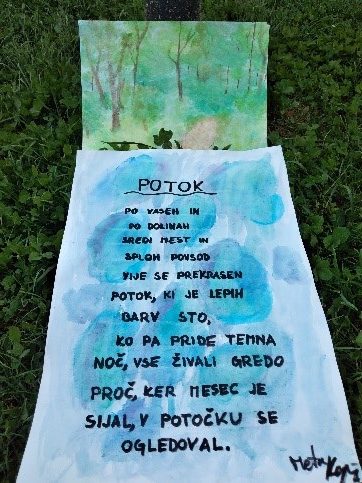 POTOK
PO VASEH IN
PO DOLINAH
SREDI MEST IN
SPLOH POVSOD
VIJE SE PREKRASEN
POTOK, KI JE LEPIH
BARV STO,
KO PA PRIDE TEMNA
NOČ, VSE ŽIVALI GREDO
PROČ, KER MESEC JE
SIJAL, V POTOČKU SE
OGLEDOVAL.
Meta